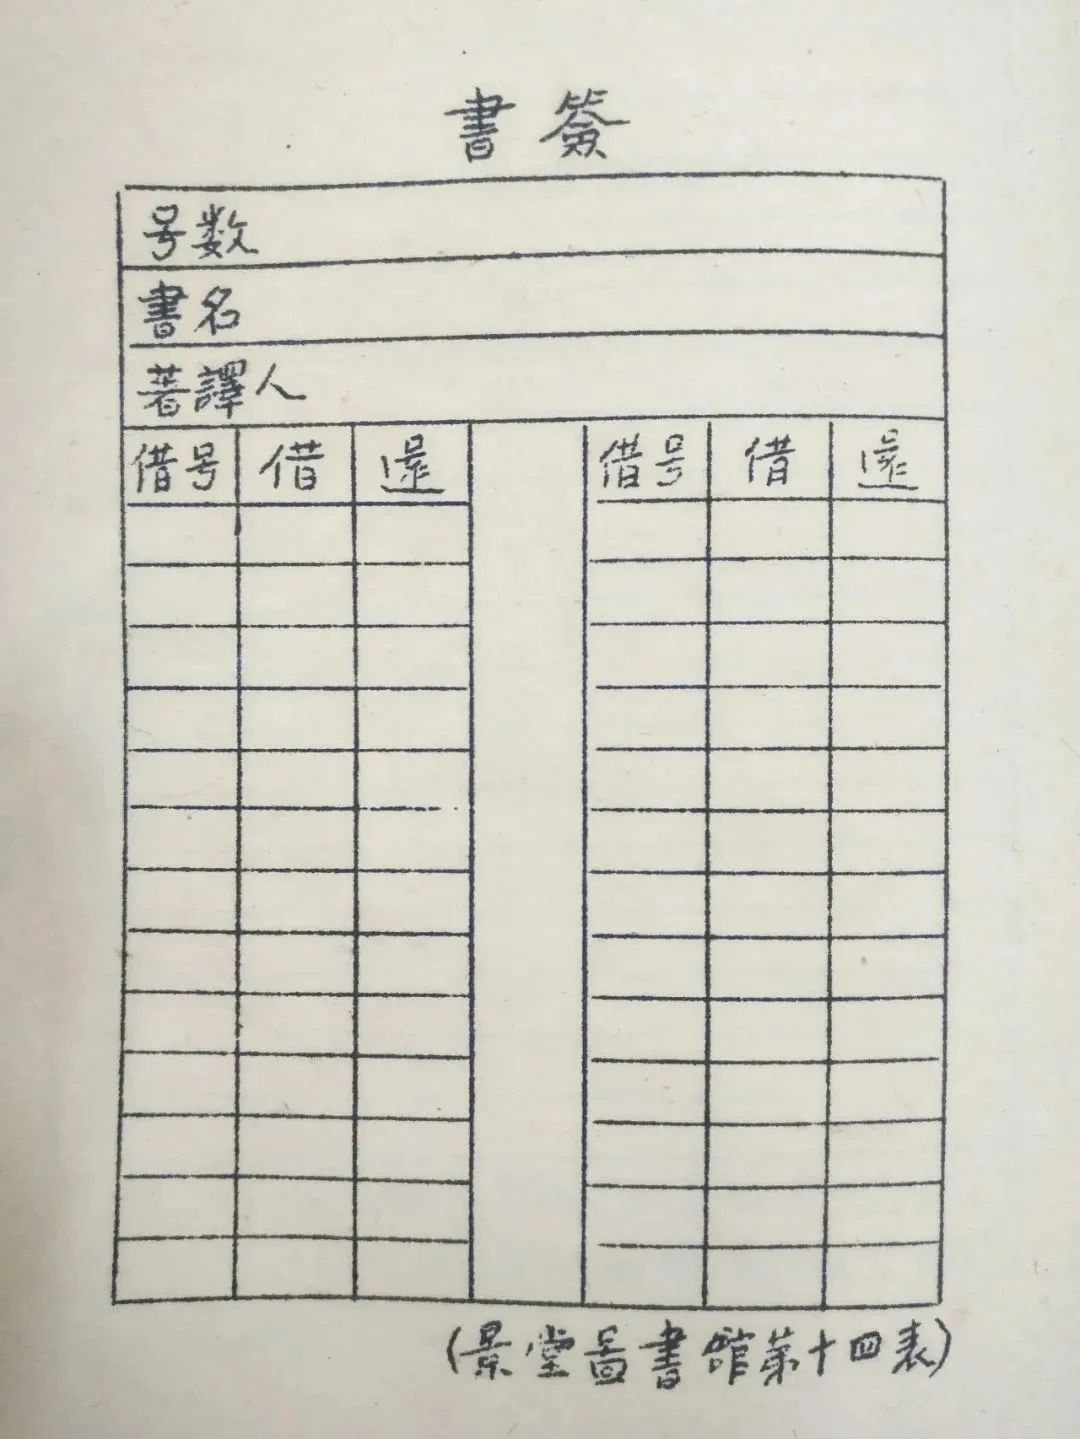 書簽
号数
書名
著譯人
借号 借 還 借号 借 還
(景堂圖書館第十四表)